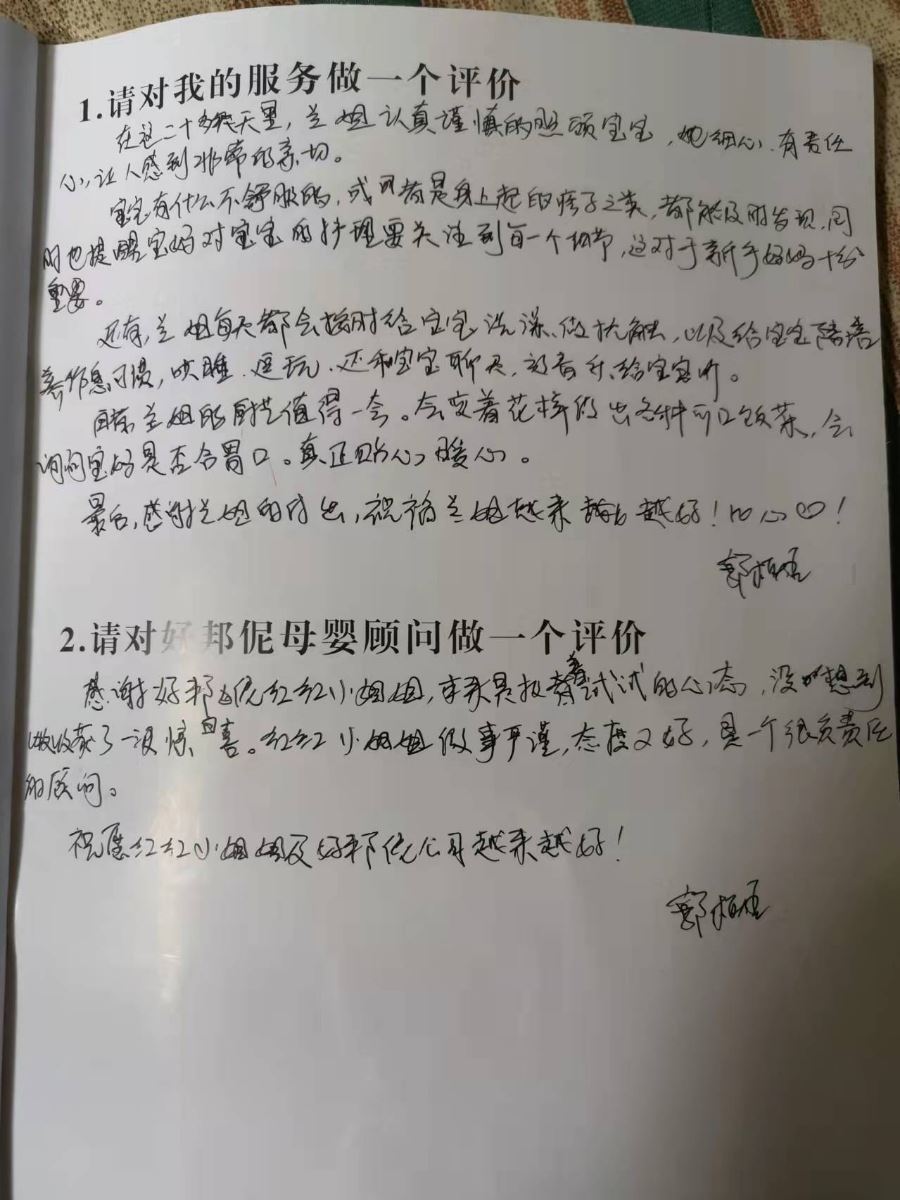 1.请对我的服务做一个评价
在这二十多天里，兰姐认真谨慎的照顾宝宝，她细心、有责任
心，让人感到非常的亲切。
宝宝有什么不舒服的，或者是身上起的痱子之类，都能及时发现，同
时也提醒宝妈对宝宝的护理要关注到每一个细节，这对于新手妈妈十分
重要。
还有，兰姐每天都会按时给宝宝洗澡、做抚触，以及给宝宝陪
养作息习惯，哄睡、逗玩、还和宝宝聊天，给宝宝听。
兰姐的厨艺值得一夸。会变着花样做出各种可口饭菜，会
询问宝妈是否合胃口。真正贴心暖心。
最后，感谢兰姐的付出，祝福兰姐越来越好！
郭
2.请对好邦伲母婴顾问做一个评价
感谢好邦伲红红小姐姐，本来是抱着试试的心态，没想到
收获了一份惊喜。红红小姐姐做事严谨，态度又好，是一个很负责任
的顾问。
祝愿红红小姐姐及好邦伲公司越来越好！
郭